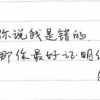 你说我是错的
那你最好证明你